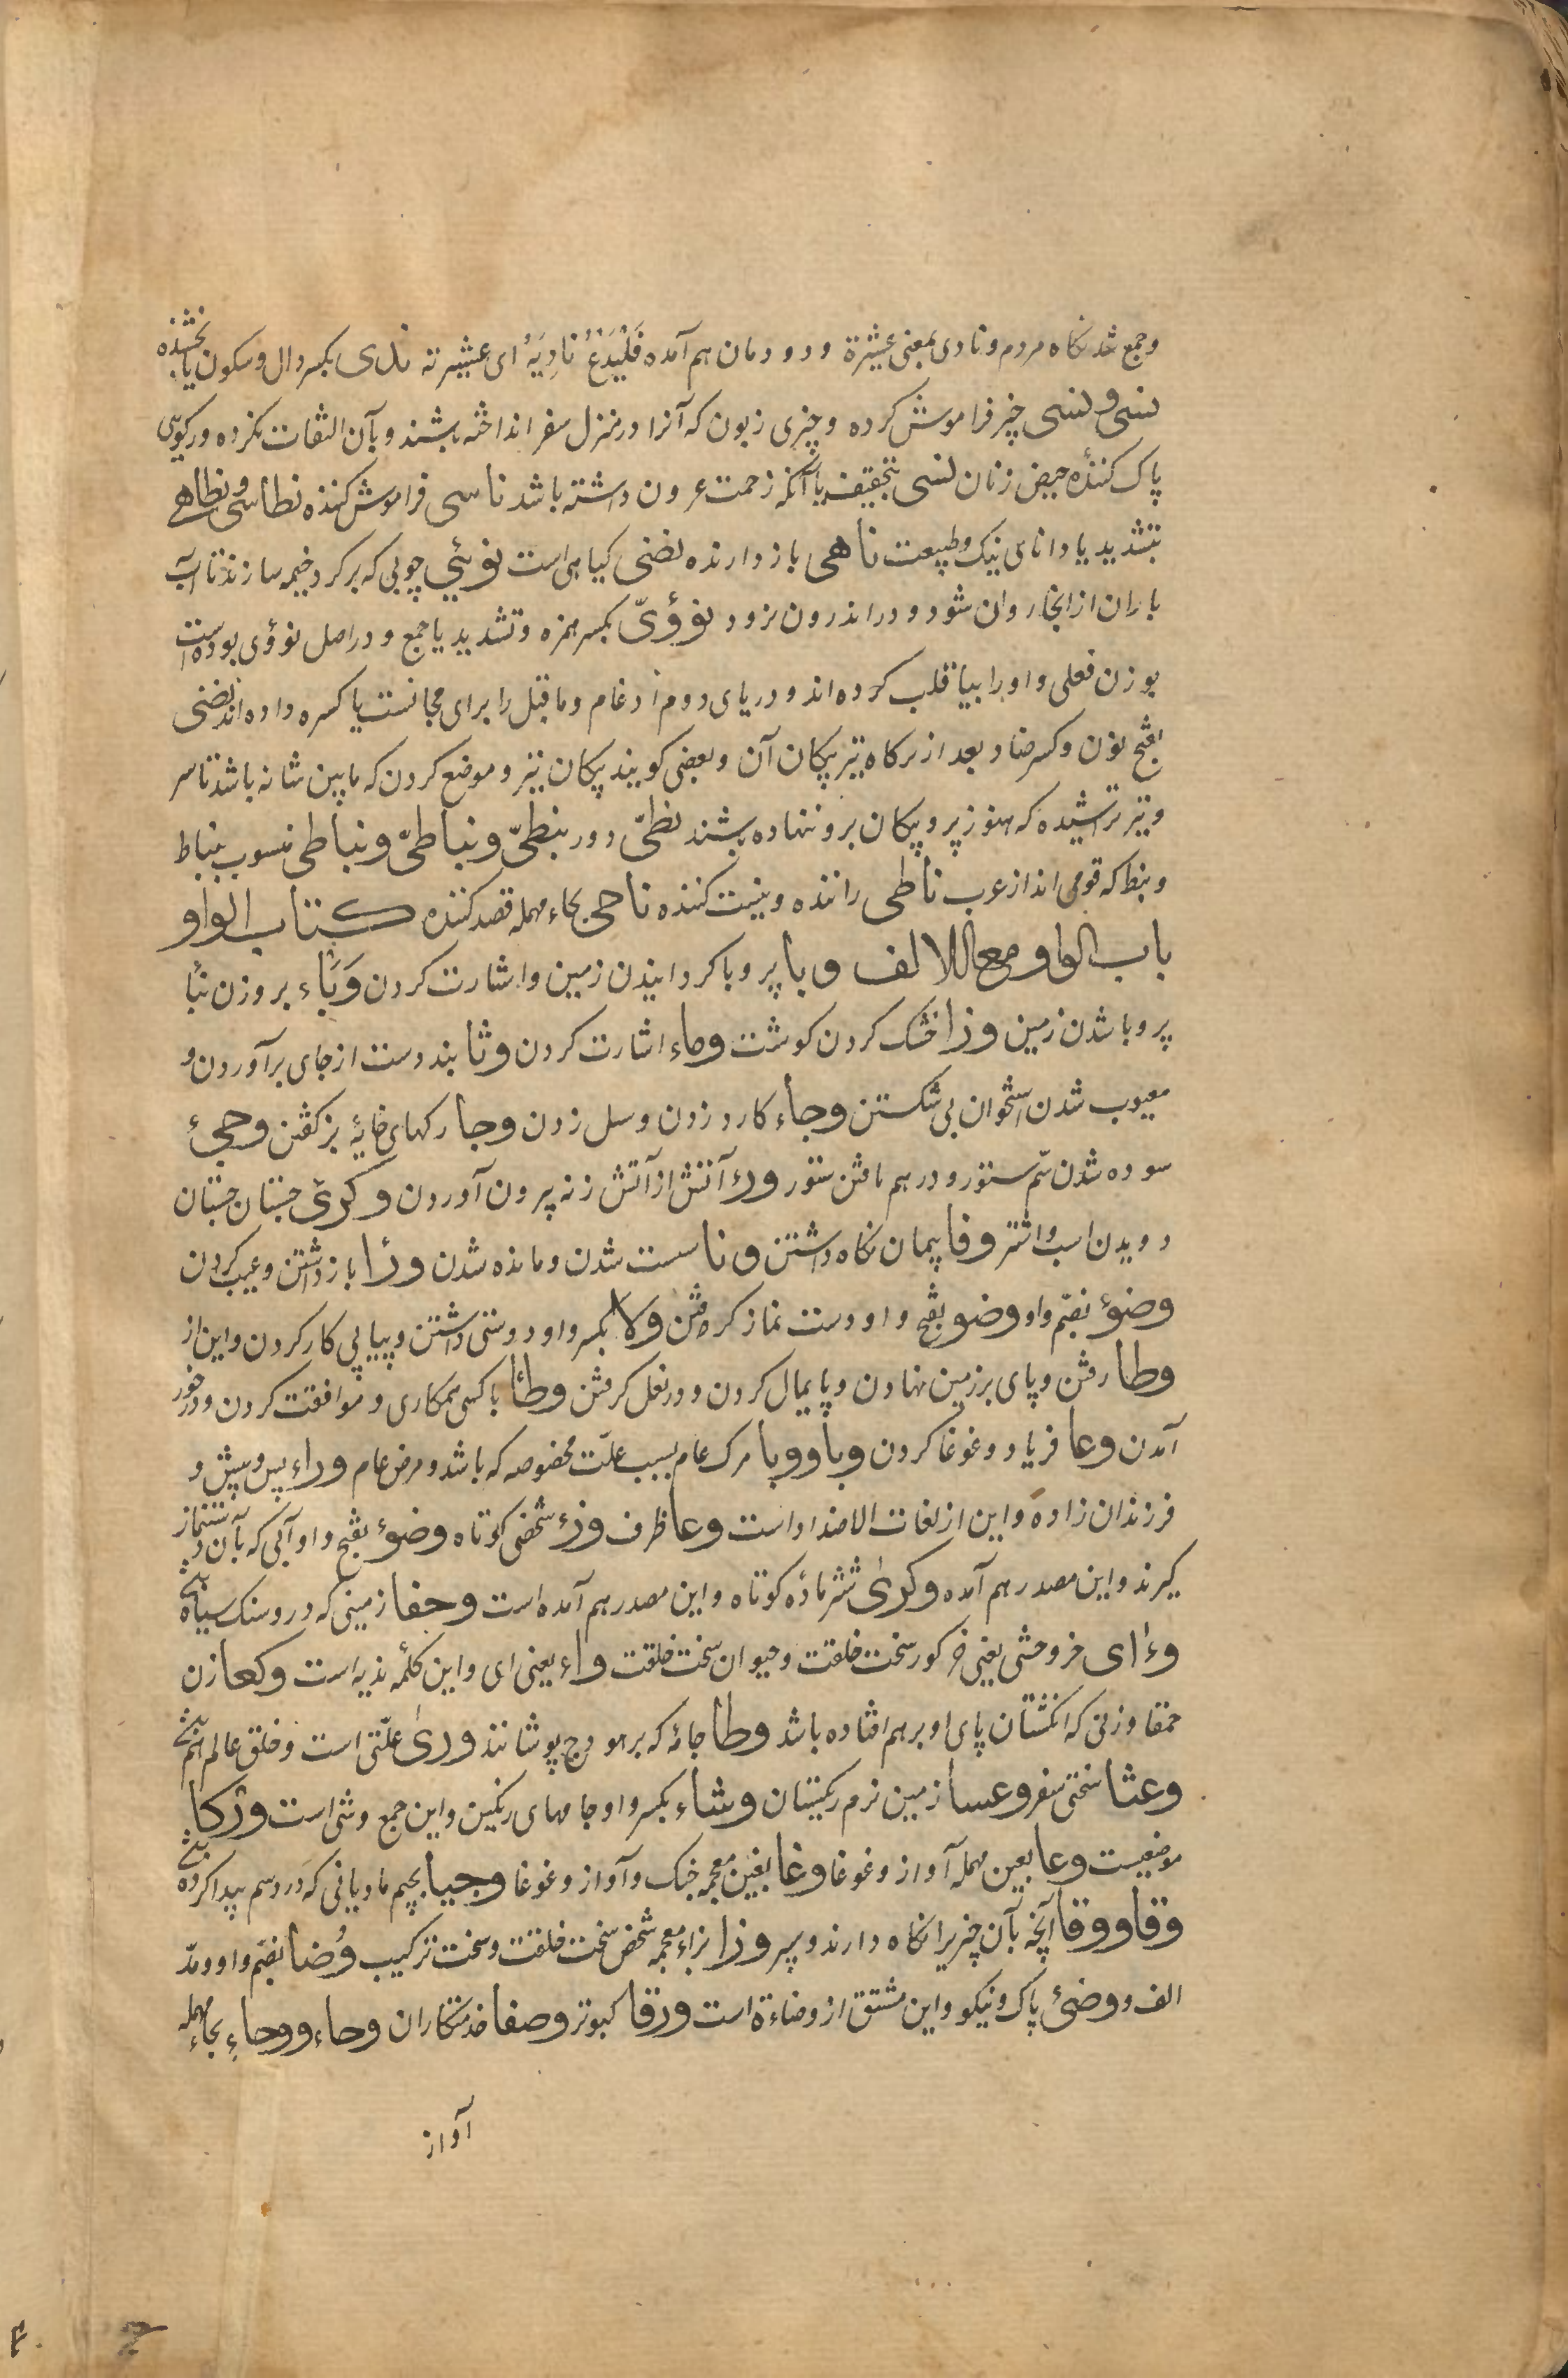 وجمع شد نکاه مردم و نادی بمعنی عشیرة و دودمان هم آمده فَلْیَدْعُ نادِیَهُ ای عشیرته ندی بکسر دال و سکون یا بخشنده
نسی و نسی چیز فراموش کرده و چیزی زبون که آنرا در منزل سفر انداخته باشند و بآن التفات نکرده و رکویی
پاک کنندۀ حیض زنان نسی بتخفیف یا آنکه زحمت عرون داشته باشد ناسی فراموش کننده نطاسی و نطاهی
بتشدید یا دانای نیک و طبیعت ناهی بازدارنده نضی کیاهی است نوئی جویی که بر کرد خیمه سازند تا آب
باران از انجا روان شود و در اندرون نرود نؤیّ بکسر همزه و تشدید یا جمع و در اصل نوؤی بوده است
بوزن فعلی واو را بیا قلب کرده اند و در یای دوم ادغام و ماقبل را برای مجانست یا کسره داده اند نضی
بفتح نون و کسر ضاد بعد از نرکاه تیر پیکان آن و بعضی کویند پیکان تیر و موضع کردن که مابین شانه باشد تا سر
و تیر تراشیده که هنوز پر و پیکان برو ننهاده باشند نطیّ دور نبطیّ و نباطیّ و نباطی منسوب بنباط
و نبط که قومی اند از عرب ناطی راننده و نیست کننده ناحی بحاء مهمله قصد کننده کتاب الواو
باب الواو مع اللالف وبا پر وبا کردانیدن زمین و اشارت کردن وَبَاء بروزن نبأ
پر وبا شدن زمین وزا خشک کردن کوشت وماء اشارت کردن وثا بند دست از جای برآوردن و
معیوب شدن استخوان بی شکستن وجاء کارد زدن و سل زدن وجا رکهای خایۀ بز کفتن وجئ
سوده شدن سُم ستور و درهم یافتن ستور ورء آتش از آتش زنه بیرون آوردن وکریٔ جستان جستان
دویدن اسب و اشتر وفا پیمان نکاه داشتن ونا سست شدن و مانده شدن وزا بازداشتن و عیب کردن
وضوء بضم واو وضو بفتح واو دست نماز کرفتن ولا بکسر واو دوستی داشتن و پیاپی کار کردن و این از
وطا رفتن و پای بر زمین نهادن و پایمال کردن و در نعل کرفتن وطأ با کسی همکاری و موافقت کردن و در خور
آمدن وعا فریاد و غوغا کردن وبا و وبا مرک عام بسبب علّت مخصوصه که باشد و مرض عام وراء پس و پیش و
فرزندان زاده و این از لغات الاضداد است وعا ظرف وزء شخص کوتاه وضوء بفتح واو آبی که بآن دستنماز
کیرند و این مصدر هم آمده وکریٰ شتر مادۀ کوتاه و این مصدر هم آمده است وحفا زمینی که درو سنک سیاه
وءای خر وحشی یعنی خر کور سخت خلقت و حیوان سخت خلقت واء یعنی ای و این کلمۀ ندبه است وکعا زن
حمقا و زنی که انکشتان پای او بر هم افتاده باشد وطا جامۀ که بر هودج پوشانند وریٰ علّتی است و خلق عالم
وعثا سختی سفر وعسا زمین نرم ریکستان وشاء بکسر واو جامهای رنکین و این جمع وشی است وژکا
موضعیست وعا بعین مهمله آواز و غوغا وغا بغین معجمه جنک و آواز و غوغا وجیا بجیم مادیانی که درد سم پیدا کرده
وقا و وقا آنچه بآن چیز را نکاه دارند و سپر وزا بزاء معجمه شخص سخت خلقت و سخت ترکیب وُضا بضم واو و مدّ
الف و وضئ پاک و نیکو و این مشتق از وضاءة است ورقا کبوتر وصفا خدمتکاران وحاء و وحاء بحاء مهمله
آواز